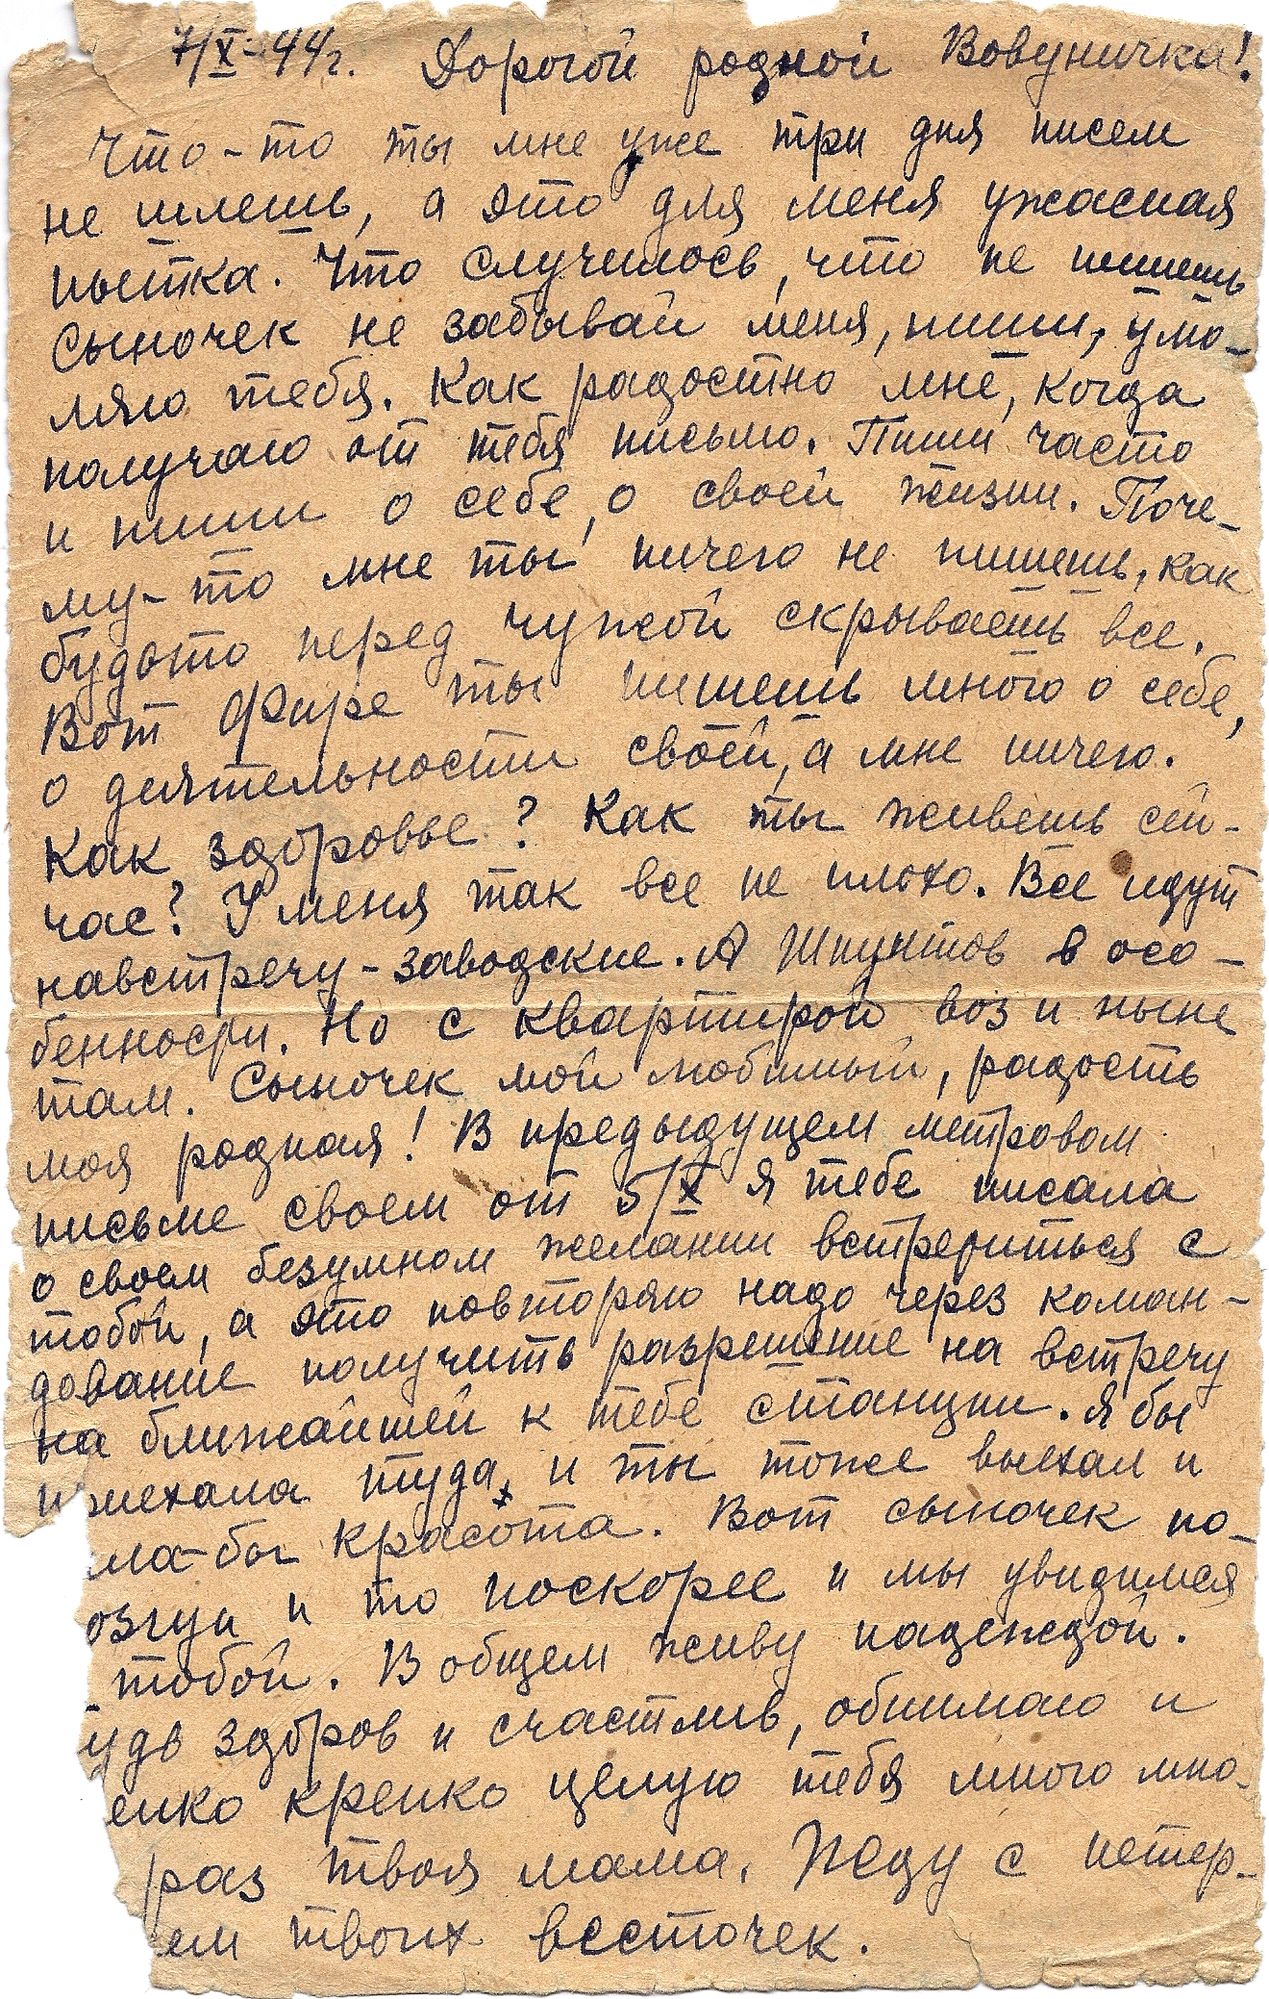 7/X-44г. Дорогой родной Вовуничка!
Что-то ты мне уже три дня писем
не шлешь, а это для меня ужасная
пытка. Что случилось, что не пишешь
Сыночек не забывай меня, пиши, умо-
ляю тебя. Как радостно мне, когда
получаю от тебя письмо. Пиши часто
и пиши о себе, о своей жизни. Поче-
му-то мне ты ничего не пишешь, как
будьто перед чужой скрываешь все.
Вот Фире ты пишешь много о себе,
о деятельности своей, а мне ничего.
Как здоровье? Как ты живешь сей-
час? У меня так все не плохо. Все идут
навстречу-заводские. А Шпунтов в осо-
бенности. Но с квартирой воз и ныне
там. Сыночек мой любимый, радость
моя родная! В предыдущем метровом
письме своем от 5/X я тебе писала
о своем безумном желании встретиться с
тобой, а это повторяю надо через коман-
дование получить разрешение на встречу
на ближайшей к тебе станции. Я бы
приехала туда, и ты тоже выехал и
ла-бы красота. Вот сыночек по-
озгуй и то поскорее и мы увидимся
тобой. В общем живу надеждой.
удь здоров и счастлив, обнимаю и
епко крепко целую тебя много мно-
раз твоя мама. Жду с нетер-
ем твоих весточек.